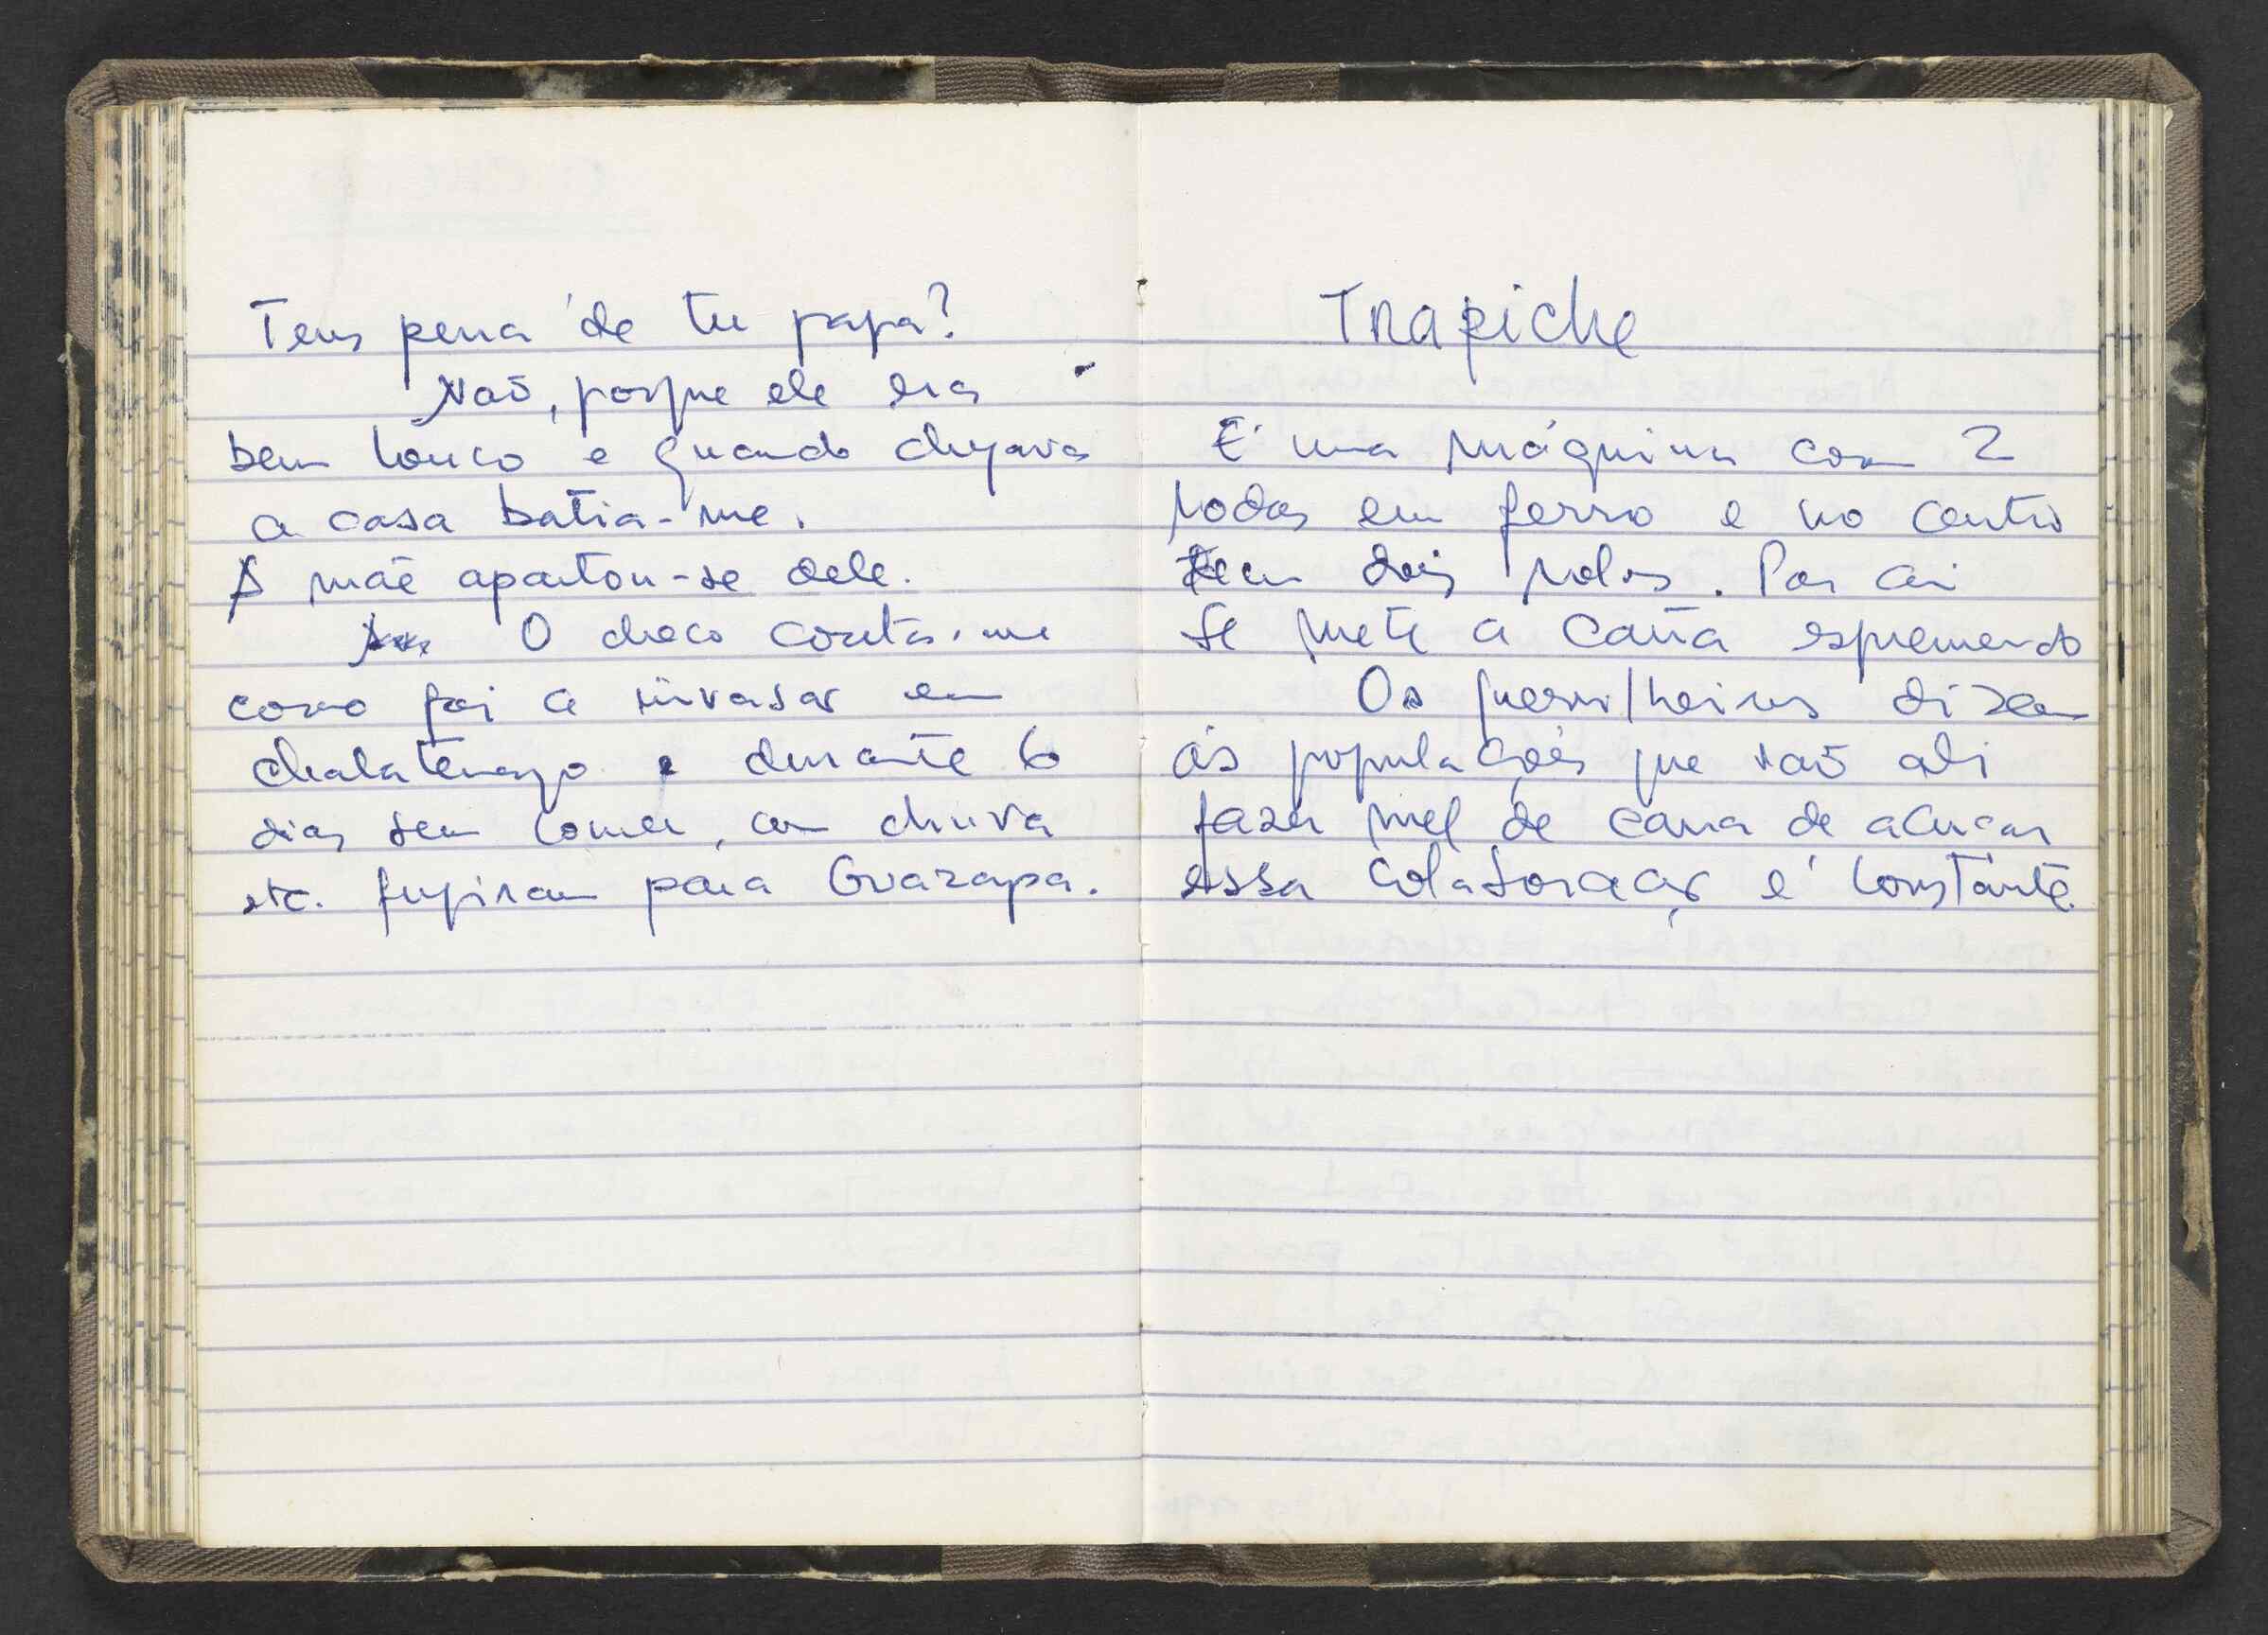 Tens pena de tu papa?
Naõ, porque ele era
bem louco e quando chegava
a casa batia-me.
A mãe apartou-se dele.
O checo conta-me
como foi a invasaõ em
chalatenango e durante 6
dias sem comer, com chuva
etc. fugiram para Guazapa.
Trapiche
E' uma máquina com 2
rodas em ferro e no centro
tem dois rolos. Por ai
se mete a caña espremendo
Os guerrilheiros dizem
ás populaçoẽs que vaõ ali
fazer mel de cana de açucar
essa colaboraçaõ e' constante.